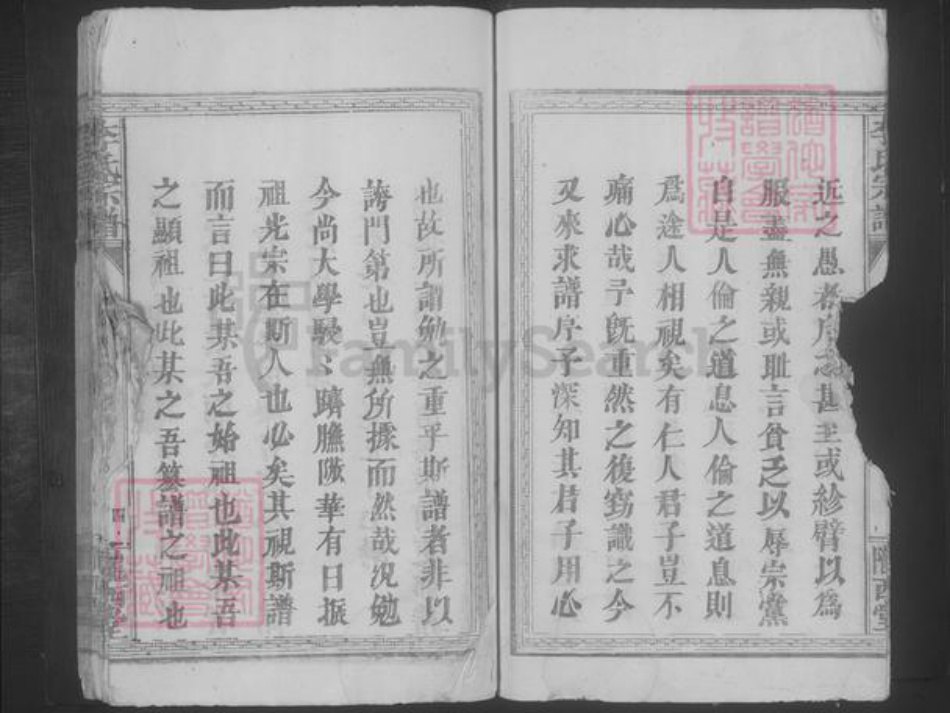 李氏宗譜
近之愚者忘甚至或紾臂以為
服盡無親或耻言貧乏以辱宗黨
自是人倫之道息人倫之道息則
爲途人相視矣有仁人君子豈不
痛心哉予旣重然之復竊識之今
又來求譜序予深知其君子用心
隴西堂
也故所謂勉之重乎斯譜者非以
誇門第也豈無所據而然哉況勉
今尚大學駸〻躋膴陟華有日振
祖光宗在斯人也必矣其視斯譜
而言曰此某吾之始祖也此某吾
之顯祖也此某之吾纂譜之祖也
李氏宗譜
四
隴西堂
FamilySearch